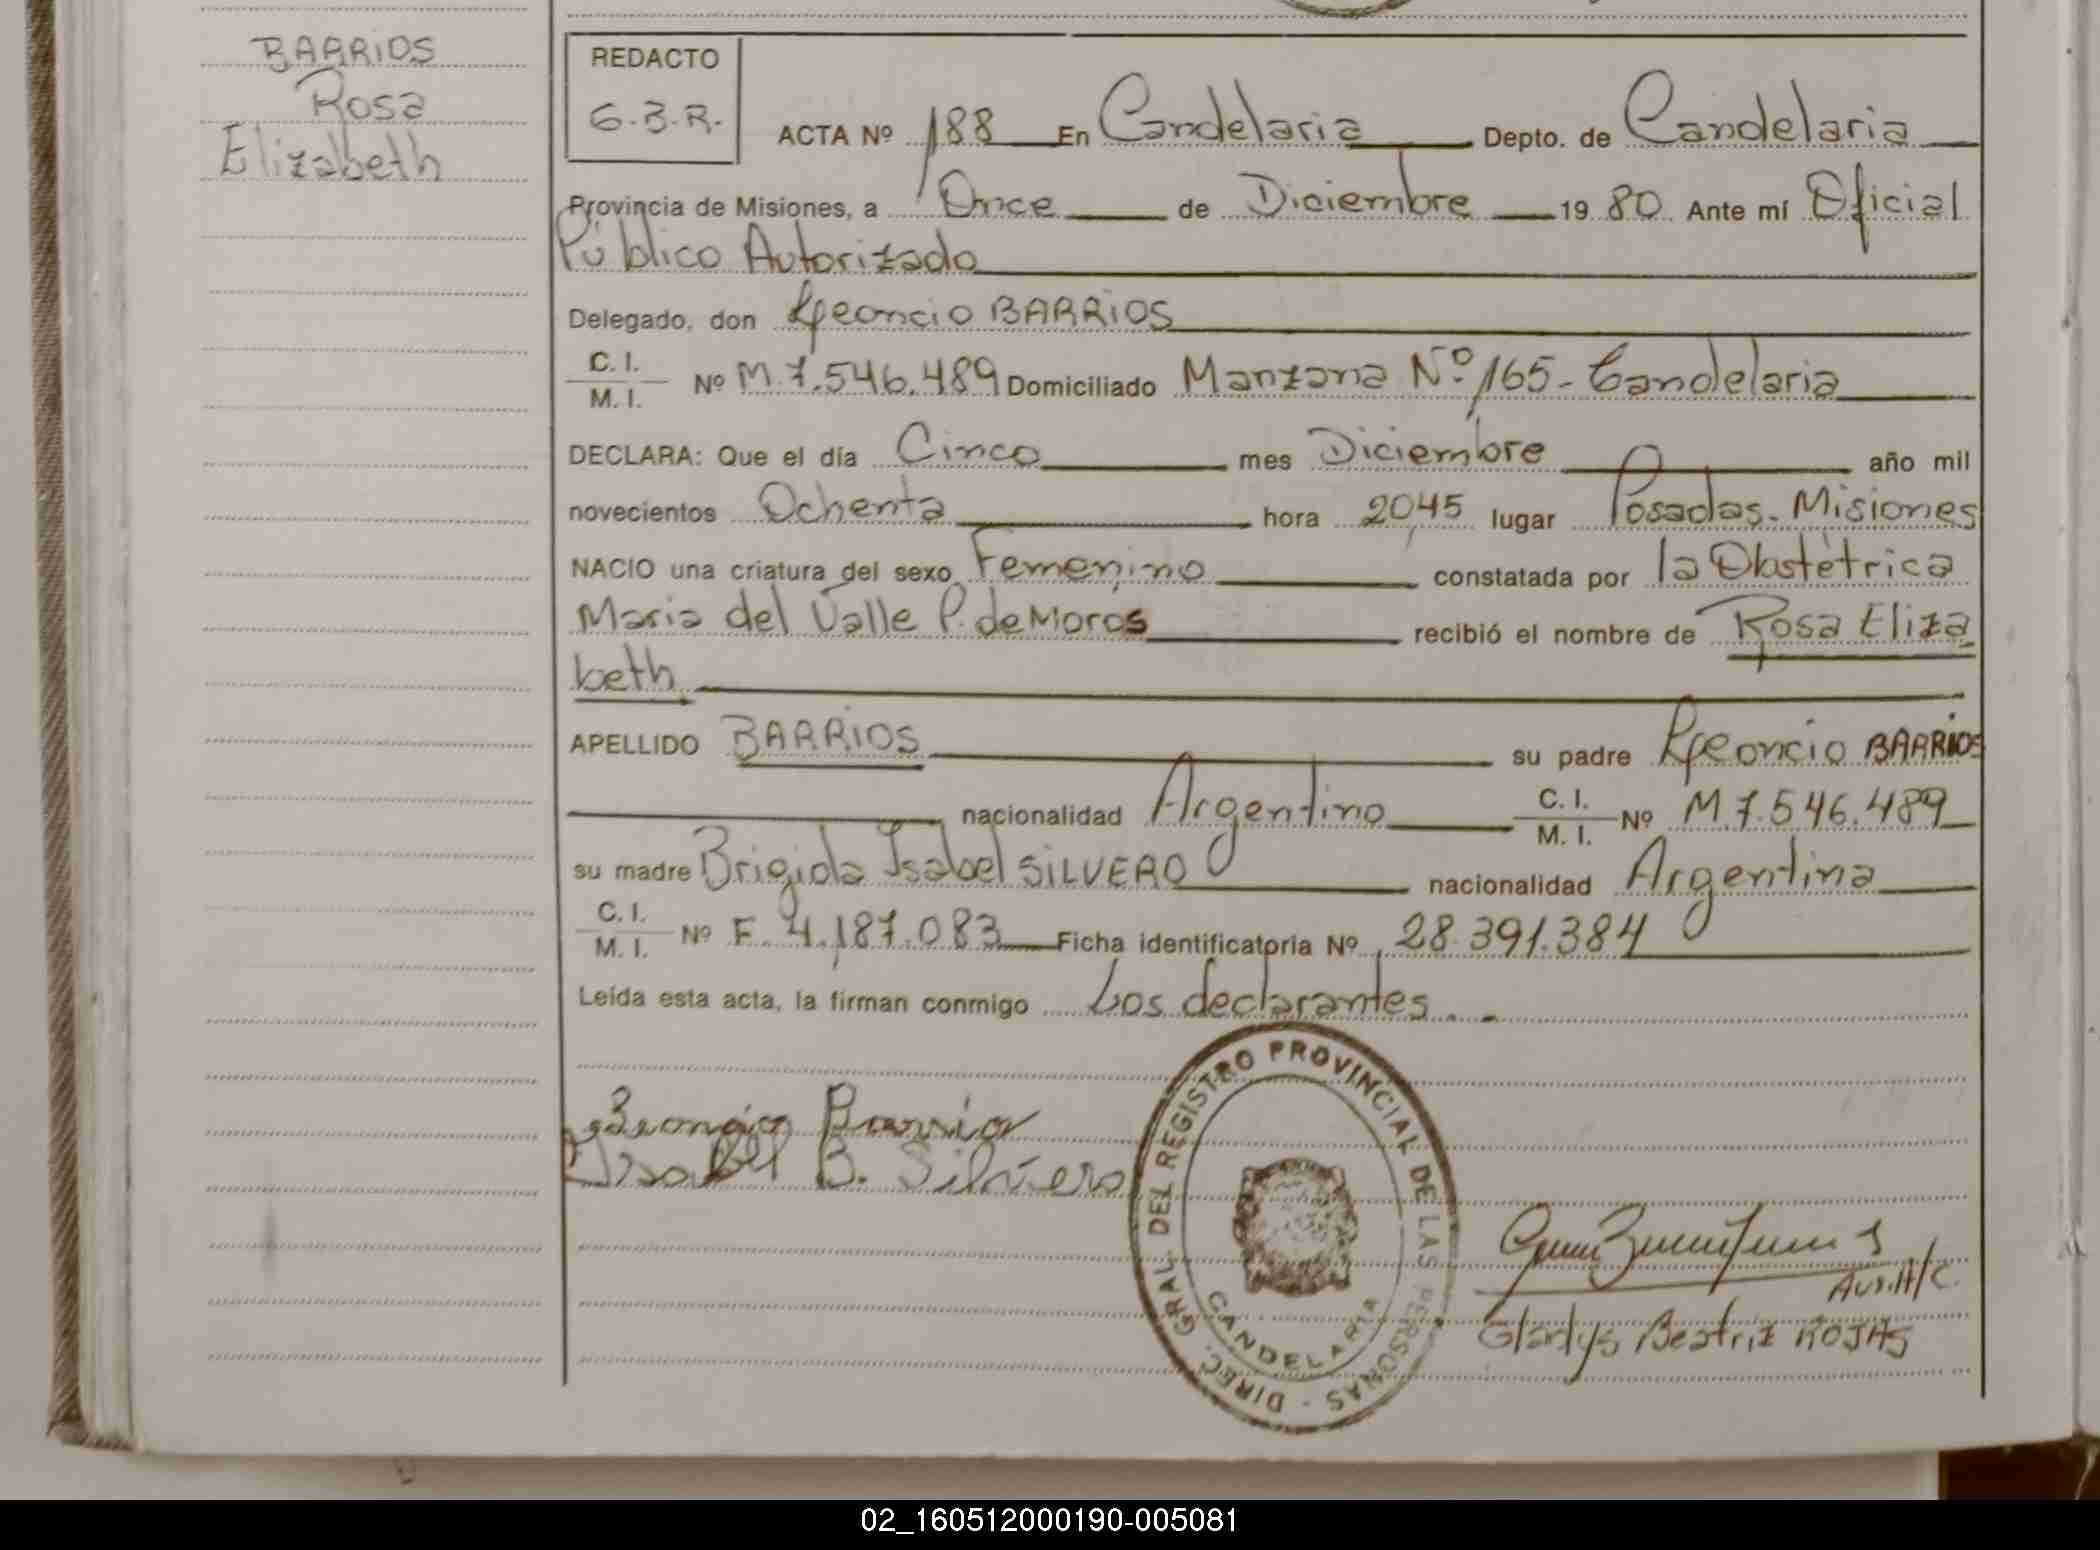 BARRIOS
Rosa
Elizabeth
REDACTO
G.B.R.
ACTA Nº 188 En Candelaria Depto. de Candelaria
Provincia de Misiones, a Once de Diciembre 19 80 Ante mí Oficial
Público Autorizado
Delegado, don Leoncio BARRIOS
C. I.
M. I. Nº M.7.546.489 Domiciliado Manzana Nº 165- Candelaria
DECLARA: Que el día Cinco mes Diciembre año mil
novecientos Ochenta hora 20,45 lugar Posadas-Misiones
NACIO una criatura del sexo Femenino constatada por la Obstétrica
Maria del Valle P. de Moros recibió el nombre de Rosa Eliza
beth
APELLIDO BARRIOS su padre Leoncio BARRIOS
nacionalidad Argentino C. I.
M. I. Nº M.7.546.489
su madre Brigida Isabel SILVERO nacionalidad Argentina
C. I.
M. I. Nº F. 4.187.083 Ficha identificatoria Nº 28.391.384
Leída esta acta, la firman conmigo Los declarantes.-
Leoncio Barrios
Isabel B. Silvero
DIREC. GRAL. DEL REGISTRO PROVINCIAL DE LAS PERSONAS -
CANDELARIA
Gladys Beatriz ROJAS
02_160512000190-005081